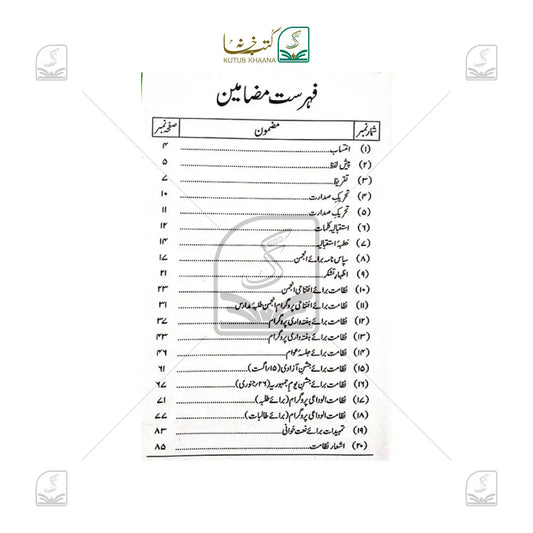 کتب خانہ
KUTUB KHAANA
فہرست مضامین
شمار نمبر مضمون صفحہ نمبر
(۱) انتساب ۴
(۲) پیش لفظ ۵
(۳) تقریظ ۷
(۴) تحریک صدارت ۱۰
(۵) تحریک صدارت ۱۱
(۶) استقبالیہ کلمات ۱۲
(۷) خطبۂ استقبالیہ ۱۴
(۸) سپاس نامہ برائے انجمن ۱۷
(۹) اظہار تشکر ۲۱
(۱۰) نظامت برائے افتتاحی انجمن ۲۳
(۱۱) نظامت برائے افتتاحی پروگرام انجمن طلبۂ مدارس ۳۱
(۱۲) نظامت برائے ہفتہ داری پروگرام ۳۷
(۱۳) نظامت برائے ہفتہ داری پروگرام ۴۳
(۱۴) نظامت برائے جلسۂ عوام ۴۶
(۱۵) نظامت برائے جشن آزادی (۱۵/اگست) ۶۱
(۱۶) نظامت برائے جشن یوم جمہوریہ (۲۶/جنوری) ۶۷
(۱۷) نظامت الوداعی پروگرام (برائے طلبہ) ۷۱
(۱۸) نظامت الوداعی پروگرام (برائے طالبات) ۷۷
(۱۹) تمہیدات برائے نعت خوانی ۸۳
(۲۰) اشعار نظامت ۸۵